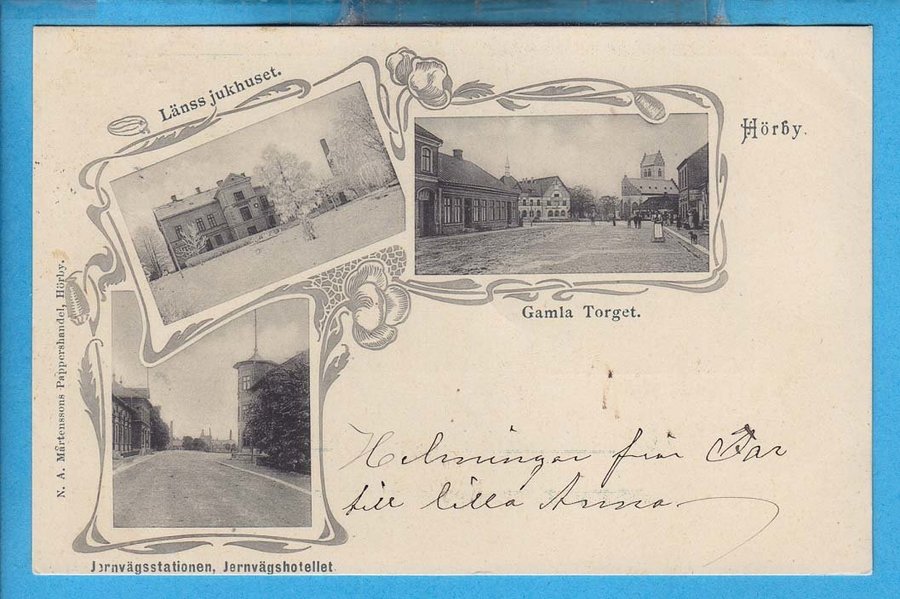 Länssjukhuset.
Hörby.
Gamla Torget.
N. A. Mårtenssons Pappershandel, Hörby.
Helsningar från Far
till lilla Anna
Jernvägsstationen, Jernvägshotellet